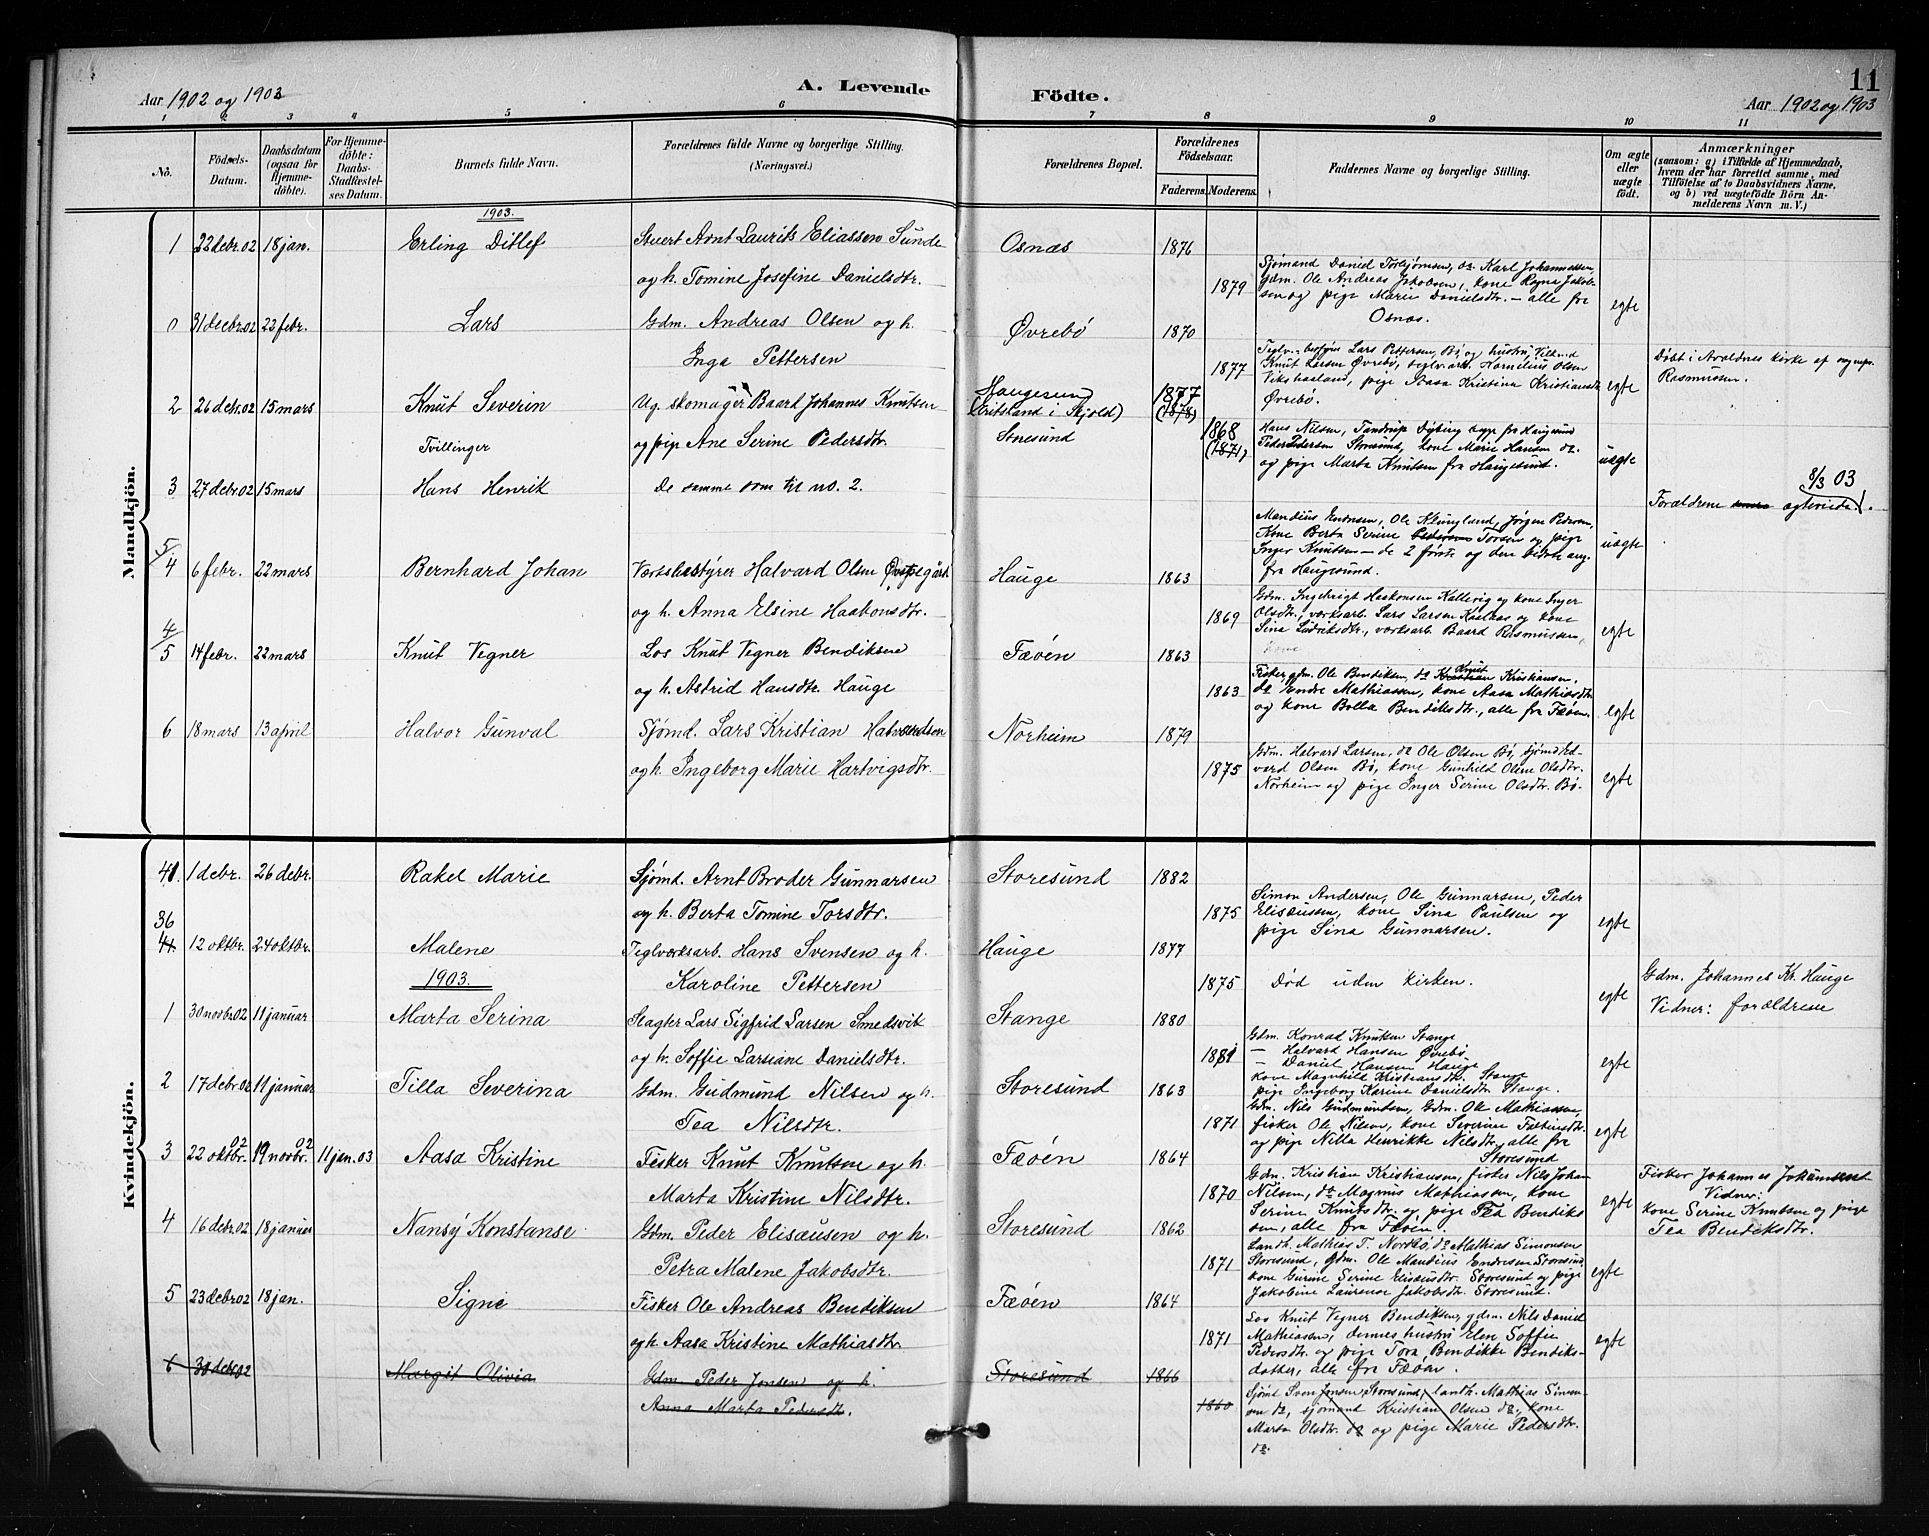 Aar 1902 og 1903
A. Levende
Födte.
11
Aar 1902 og 1903
1 2 3 4 5 6 7 8 9 10 11
No.
Födsels-
Datum.
Daabsdatum
(ogsaa for
Hjemme-
döbte).
For Hjemme-
döbte:
Daabs-
Stadfæstel-
ses Datum.
Barnets fulde Navn.
Forældrenes fulde Navne og borgerlige Stilling.
(Næringsvei.)
Forældrenes Bopæl.
Forældrenes
Födselsaar.
Faderens. Moderens.
Faddernes Navne og borgerlige Stilling.
Om ægte
eller
uægte
födt.
Anmærkninger
(saasom: a) i Tilfælde af Hjemmedaab,
hvem der har forrettet samme, med
Tilföielse af to Daabsvidners Navne,
og b) ved uægtefödte Börn An-
melderens Navn m. V.)
Mandkjön.
1903.
1 22 debr. 02 18 jan. Erling Ditlef Stuert Arnt Laurits Eliassen Sunde Osnæs 1876
og h. Tomine Josefine Danielsdtr. 1879
Sjømand Daniel Torbjørnsen, do Karl Johannessen,
gdm. Ole Andreas Jakobsen, kone Ragne Jakob-
sen og pige Marie Danielsdtr. – alle fra
Osnæs. egte
0 31 decbr. 02 22 febr. Lars Gdm. Andreas Olsen og h. Øvrebö 1870
Inga Pettersen 1877
Teglv. bestyrer Lars Pettersen, Bö, og hustru,
Knut Larsen Øvrebö, teglværk. Kornelius Olsen
Vikshaaland, pige Aasa Kristina Kristiansdtr
Øvrebö. egte
Döbt i Avaldnes kirke af sognepr.
Rasmussen.
2 26 debr. 02 15 mars Knut Severin Ug. skomager Baard Johannes Knutsen Haugesund
(Eritsland i Skjold) 1877 (1878)
Tvillinger og pige Ane Serine Pedersdtr. Storesund 1868 (1871)
Hans Nilsen, Tandrup Dybing begge fra Haugesund
Peder Pedersen Storesund, kone Marie Hansen do.
og pige Marta Knutsen fra Haugesund. uægte
3 27 debr. 02 15 mars Hans Henrik De samme som til no. 2.
8/3 03
Forældrene egteviede.
Mandius Endresen, Ole Klungland, Jørgen Pedersen,
Kone Berta Serine Pedersen Torsen og pige
Inger Knutsen – de 2 første og den sidste ang.
fra Haugesund. uægte
5/4 6 febr. 22 mars Bernhard Johan Værksbestyrer Halvard Olsen Øvregård Hauge 1863
og h. Anna Elsine Haakonsdtr. 1869
Gdm. Ingebrigt Haakonsen Kallevig og kone Inger
Olsdtr., værksarb. Lars Larsen Kaalaas og kone
Sina Ludriksdtr., værksarb. Baard Rasmussen,
kone egte
4/5 14 febr. 22 mars Knut Vegner Los Knut Vegner Bendiksen Fæöen 1863
og h. Astrid Hansdtr. Hauge 1863
Fisker gdm. Ole Bendiksen, do Kristian Knut Kristiansen.
do Endre Mathiassen, kone Aasa Mathiasdtr
og kone Bolla Bendiksdtr., alle fra Fæöen. egte
6 18 mars 13 april Halvor Gunval Sjømd. Lars Kristian Halvardsen Norheim 1879
og h. Ingeborg Marie Hartvigsdtr. 1875
Gdm. Halvard Larsen, do Ole Olsen Bö, sjømd Ed-
vard Olsen Bö, kone Gunhild Oline Olsdtr.
Norheim og pige Inger Serine Olsdtr. Bö. egte
Kvindekjön.
41. 1 debr. 26 debr. Rakel Marie Sjømd. Arnt Broder Gunnarsen Storesund 1882
og h. Berta Tomine Torsdtr. 1875
Simon Andersen, Ole Gunnarsen, Peder
Elisæussen, kone Sina Paulsen og
pige Sina Gunnarsen. egte
36
41 12 oktbr. 24 oktbr. Malene Teglværksarb. Hans Svensen og h. Hauge 1877
Karoline Pettersen 1875
Död uden kirken. egte
Gdm. Johannes Kr. Hauge
Vidner: forældrene
1903.
1 30 novbr. 02 11 januar Marta Serina Slagter Lars Sigfrid Larsen Smedsvik Stange 1880
og h. Soffie Larsiane Danielsdtr. 1881
Gdm. Konrad Knutsen Stange
– Halvard Hansen Øvrebö
– Daniel Hansen Hauge
kone Magnhild Kristiansdtr. Stange
pige Ingeborg Karine Danielsdtr Stange. egte
2 17 debr. 02 11 januar Tilla Severina Gdm. Gudmund Nilsen og h. Storesund 1863
Tea Nilsdtr. 1871
Gdm. Nils Gudmundsen, Gdm. Ole Mathiassen,
fisker Ole Nilsen, kone Severine
og pige Nilla Henrikke Nilsdtr, alle fra
Storesund egte
3 22 oktbr. 02 19 novbr. 02 11 jan. 03 Aasa Kristine Fisker Knut Knutsen og h. Fæöen 1864
Marta Kristine Nilsdtr. 1870
Gdm. Kristian Kristiansen, fisker Nils Johan
Nilsen, do Magnus Mathiassen, kone
Serine Knutsdtr. og pige Tea Bendiks
sen, alle fra Fæöen egte
Fisker Johannes Johannesen
Vidner:
kone Serine Knutsen og pige
Tea Bendiksdtr.
4 16 debr. 02 18 januar Nansy Konstanse Gdm. Peder Elisæusen og h. Storesund 1862
Petra Malene Jakobsdtr. 1871
Landh. Mathias T. Nordbö, do Mathias Simonsen
Storesund, gdm. Ole Mandius Endresen Storesund
kone Gurine Serine Elisæusdtr. Storesund og pige
Jakobine Laurense Jakobsdtr. Storesund. egte
5 23 debr. 02 18 jan. Signe Fisker Ole Andreas Bendiksen Fæöen 1864
og h. Aasa Kristine Mathiasdtr 1871
Los Knut Vegner Bendiksen, gdm. Nils Daniel
Mathiassen, dennes hustru Elen Soffie
Pedersdtr. og pige Tora Bendikke Bendiks-
datter, alle fra Fæöen. egte
6 30 debr. 02 Margit Olivia Gdm. Peder Jonsen og h. Storesund 1866
Anna Marta Pedersdtr. 1860
Sjømd Sven Jensen Storesund, landh. Mathias Simon-
sen do, sjømand Kristian Olsen do., kone
Marta Olsdtr. do og pige Marie Pedersdtr.
do.